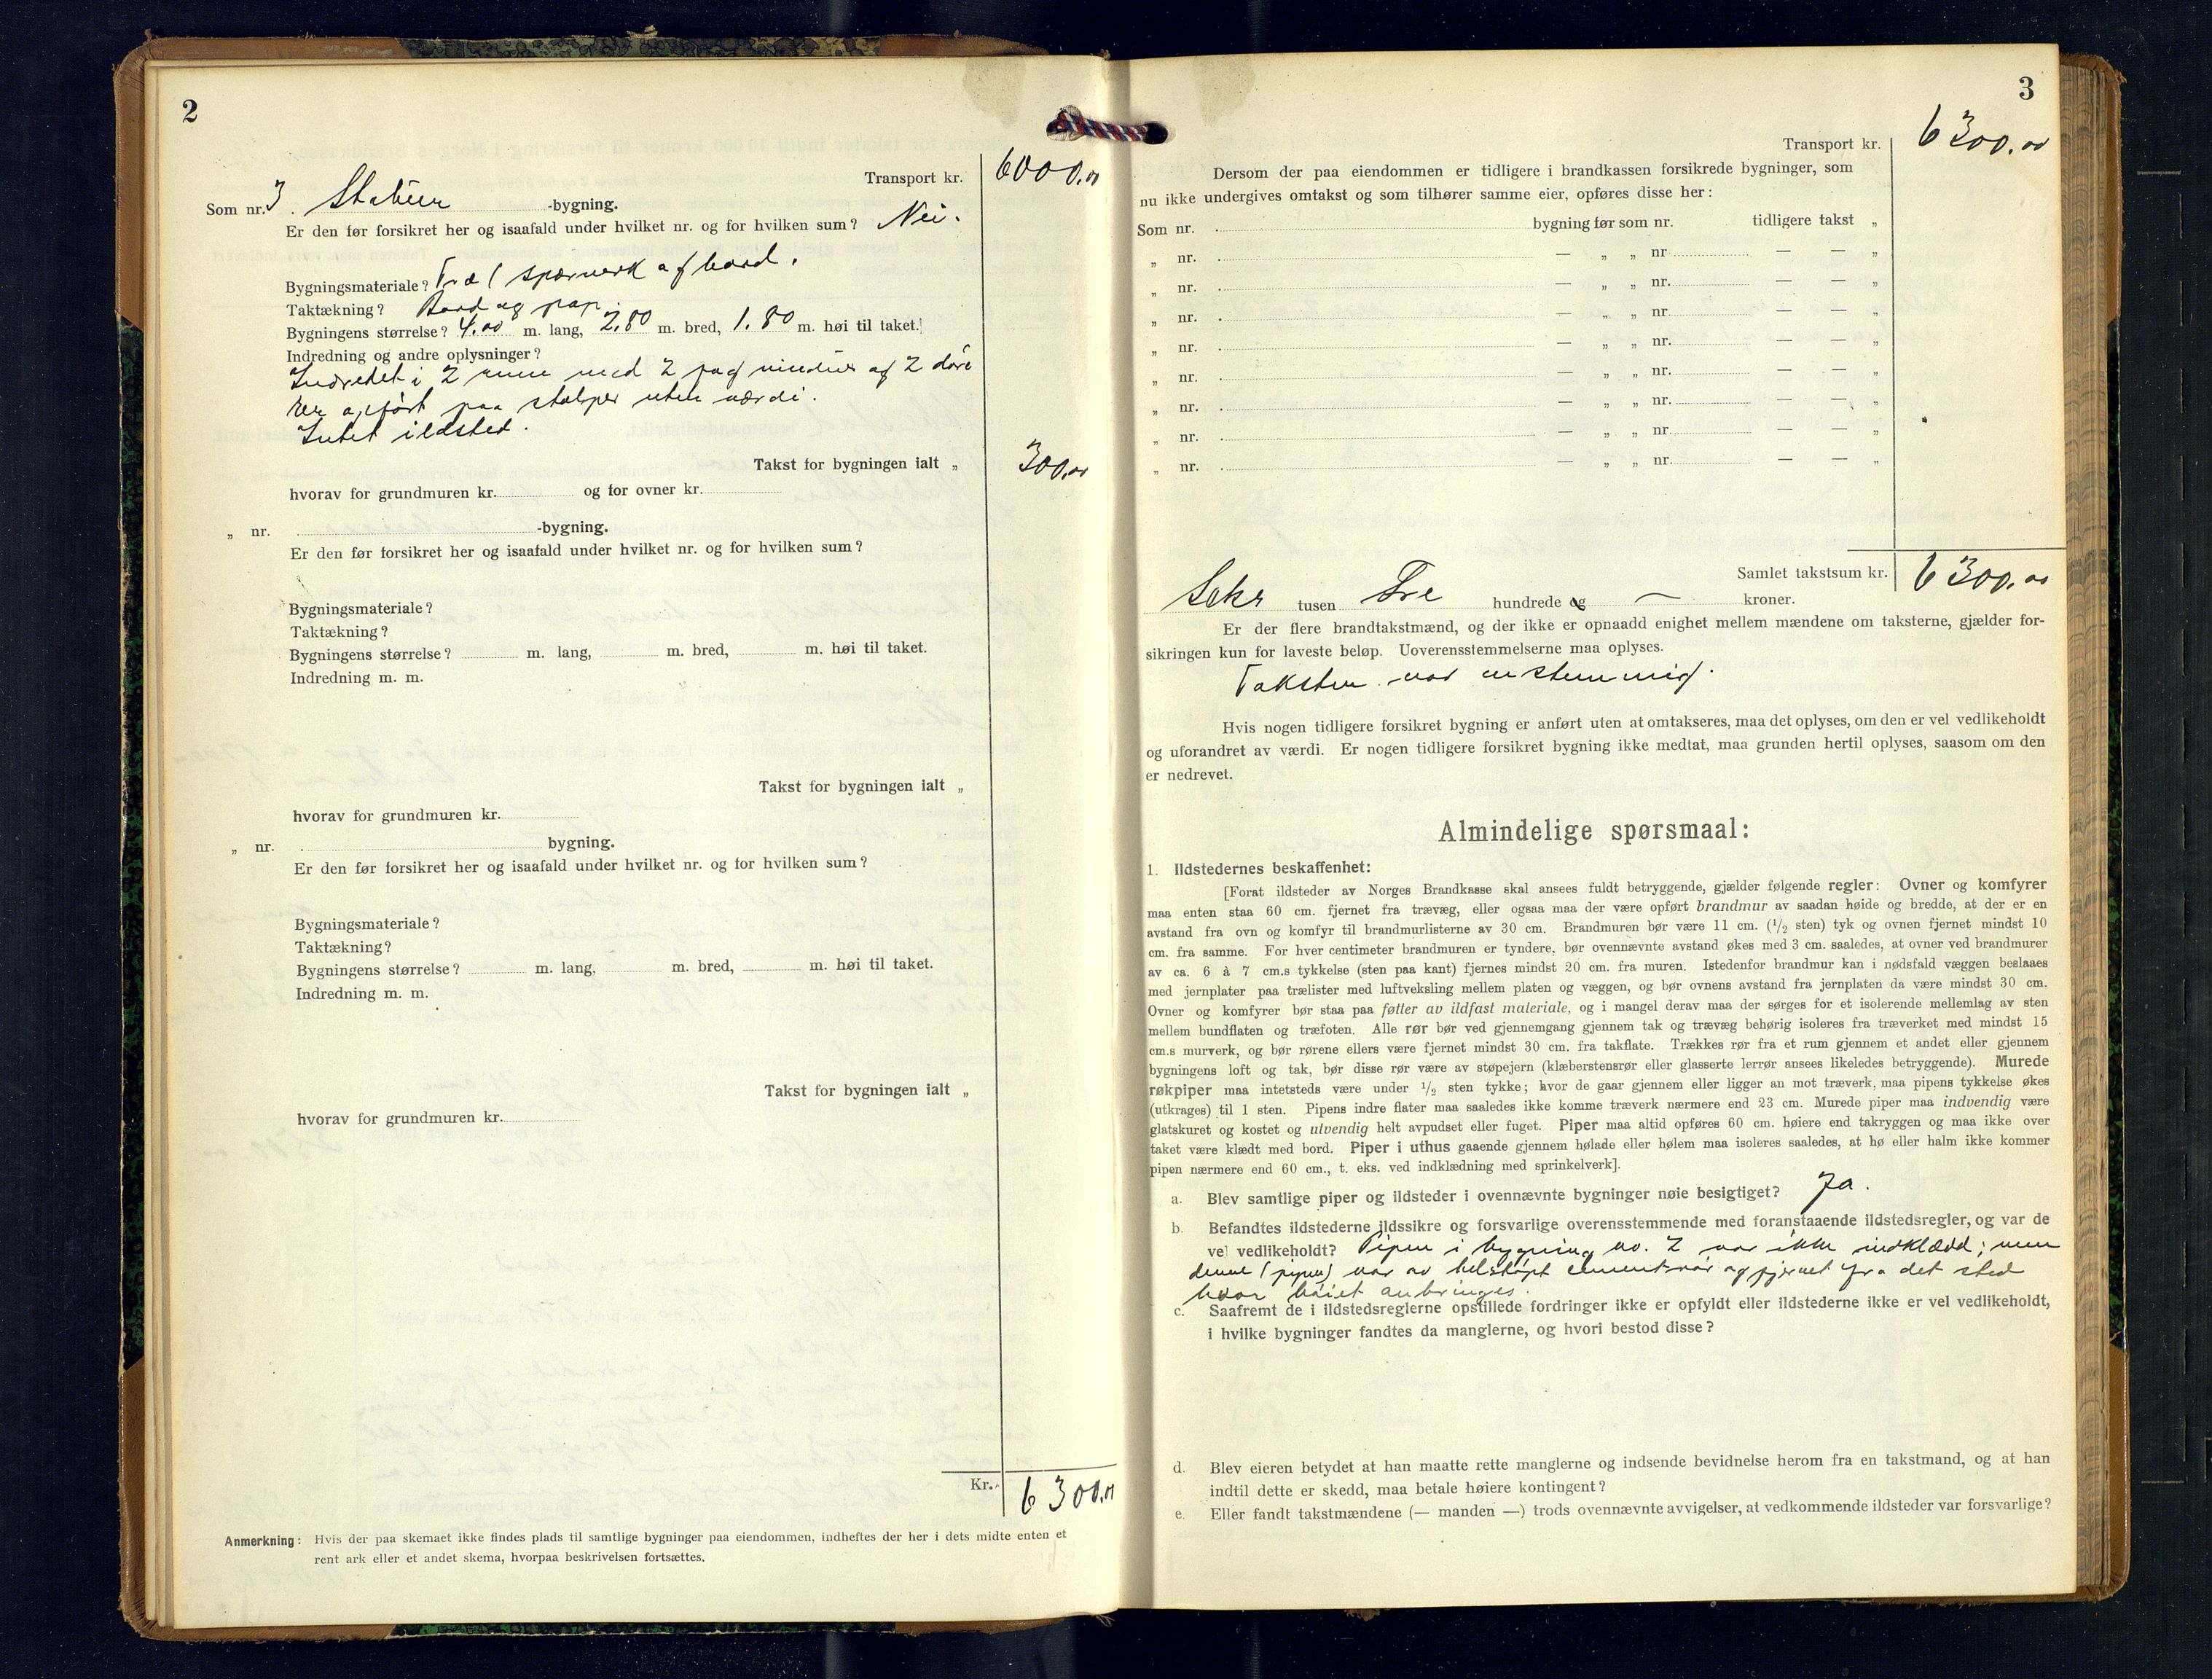 2
Transport kr. 6000,00
Som nr. 3. Stabur -bygning.
Er den før forsikret her og isaafald under hvilket nr. og for hvilken sum? Nei.
Bygningsmateriale? Træ ( spærverk af bord.
Taktækning? Bord og pap.
Bygningens størrelse? 4.00 m. lang, 2,80 m. bred, 1.80 m. høi til taket.
Indredning og andre oplysninger?
Indredet i 2 rum med 2 fag vinduer og 2 dør
rer opført paa stolper uten værdi.
Intet ildsted.
Takst for bygningen ialt „ 300,00
hvorav for grundmuren kr. og for ovner kr.
„ nr. -bygning.
Er den før forsikret her og isaafald under hvilket nr. og for hvilken sum?
Bygningsmateriale?
Taktækning?
Bygningens størrelse? m. lang, m. bred, m. høi til taket.
Indredning m. m.
Takst for bygningen ialt „
hvorav for grundmuren kr.
„ nr. bygning.
Er den før forsikret her og isaafald under hvilket nr. og for hvilken sum?
Bygningsmateriale?
Taktækning?
Bygningens størrelse? m. lang, m. bred, m. høi til taket.
Indredning m. m.
Takst for bygningen ialt „
hvorav for grundmuren kr.
Kr. 6300,00
Anmerkning: Hvis der paa skemaet ikke findes plads til samtlige bygninger paa eiendommen, indheftes der her i dets midte enten et
rent ark eller et andet skema, hvorpaa beskrivelsen fortsættes.
3
Transport kr. 6300,00
Dersom der paa eiendommen er tidligere i brandkassen forsikrede bygninger, som
nu ikke undergives omtakst og som tilhører samme eier, opføres disse her:
Som nr. bygning før som nr. tidligere takst „
„ nr. — „ „ nr. — — „
„ nr. — „ „ nr. — — „
„ nr. — „ „ nr. — — „
„ nr. — „ „ nr. — — „
„ nr. — „ „ nr. — — „
„ nr. — „ „ nr. — — „
„ nr. — „ „ nr. — — „
„ nr. — „ „ nr. — — „
Samlet takstsum kr. 6300,00
Seks tusen Tre hundrede og — kroner.
Er der flere brandtakstmænd, og der ikke er opnaadd enighet mellem mændene om taksterne, gjælder for-
sikringen kun for laveste beløp. Uoverensstemmelserne maa oplyses.
Taksten var enstemmig.
Hvis nogen tidligere forsikret bygning er anført uten at omtakseres, maa det oplyses, om den er vel vedlikeholdt
og uforandret av værdi. Er nogen tidligere forsikret bygning ikke medtat, maa grunden hertil oplyses, saasom om den
er nedrevet.
Almindelige spørsmaal:
1. Ildstedernes beskaffenhet:
[Forat ildsteder av Norges Brandkasse skal ansees fuldt betryggende, gjælder følgende regler: Ovner og komfyrer
maa enten staa 60 cm. fjernet fra trævæg, eller ogsaa maa der være opført brandmur av saadan høide og bredde, at der er en
avstand fra ovn og komfyr til brandmurlisterne av 30 cm. Brandmuren bør være 11 cm. (1/2 sten) tyk og ovnen fjernet mindst 10
cm. fra samme. For hver centimeter brandmuren er tyndere, bør ovennævnte avstand økes med 3 cm. saaledes, at ovner ved brandmurer
av ca. 6 à 7 cm.s tykkelse (sten paa kant) fjernes mindst 20 cm. fra muren. Istedenfor brandmur kan i nødsfald væggen beslaaes
med jernplater paa trælister med luftveksling mellem platen og væggen, og bør ovnens avstand fra jernplaten da være mindst 30 cm.
Ovner og komfyrer bør staa paa føtter av ildfast materiale, og i mangel derav maa der sørges for et isolerende mellemlag av sten
mellem bundflaten og træfoten. Alle rør bør ved gjennemgang gjennem tak og trævæg behørig isoleres fra træverket med mindst 15
cm.s murverk, og bør rørene ellers være fjernet mindst 30 cm. fra takflate. Trækkes rør fra et rum gjennem et andet eller gjennem
bygningens loft og tak, bør disse rør være av støpejern (klæberstensrør eller glasserte lerrør ansees likeledes betryggende). Murede
røkpiper maa intetsteds være under 1/2 sten tykke; hvor de gaar gjennem eller ligger an mot træverk, maa pipens tykkelse økes
(utkrages) til 1 sten. Pipens indre flater maa saaledes ikke komme træverk nærmere end 23 cm. Murede piper maa indvendig være
glatskuret og kostet og utvendig helt avpudset eller fuget. Piper maa altid opføres 60 cm. høiere end takryggen og maa ikke over
taket være klædt med bord. Piper i uthus gaaende gjennem hølade eller hølem maa isoleres saaledes, at hø eller halm ikke kommer
pipen nærmere end 60 cm., t. eks. ved indklædning med sprinkelverk].
a. Blev samtlige piper og ildsteder i ovennævnte bygninger nøie besigtiget? Ja.
b. Befandtes ildstederne ildssikre og forsvarlige overensstemmende med foranstaaende ildstedsregler, og var de
vel vedlikeholdt? Pipen i bygning no. 2 var ikke indklædd; men
denne (pipen) var av helstøpt cementrør og fjernet fra det sted
hvor høiet anbringes.
c. Saafremt de i ildstedsreglerne opstillede fordringer ikke er opfyldt eller ildstederne ikke er vel vedlikeholdt,
i hvilke bygninger fandtes da manglerne, og hvori bestod disse?
d. Blev eieren betydet at han maatte rette manglerne og indsende bevidnelse herom fra en takstmand, og at han
indtil dette er skedd, maa betale høiere kontingent?
e. Eller fandt takstmændene (— manden —) trods ovennævnte avvigelser, at vedkommende ildsteder var forsvarlige?